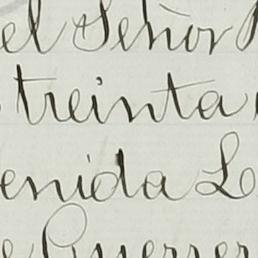 el Señor
treinta
enida L
Guerrer